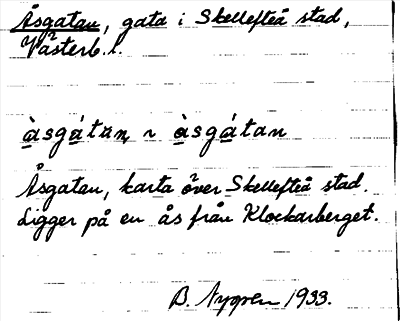 Åsgatan, gata i Skellefteå stad,
Västerb. l.
àsgátan, ~ àsgátan
Åsgatan, karta över Skellefteå stad.
Ligger på en ås från Klockarberget.
B. Nygren 1933.